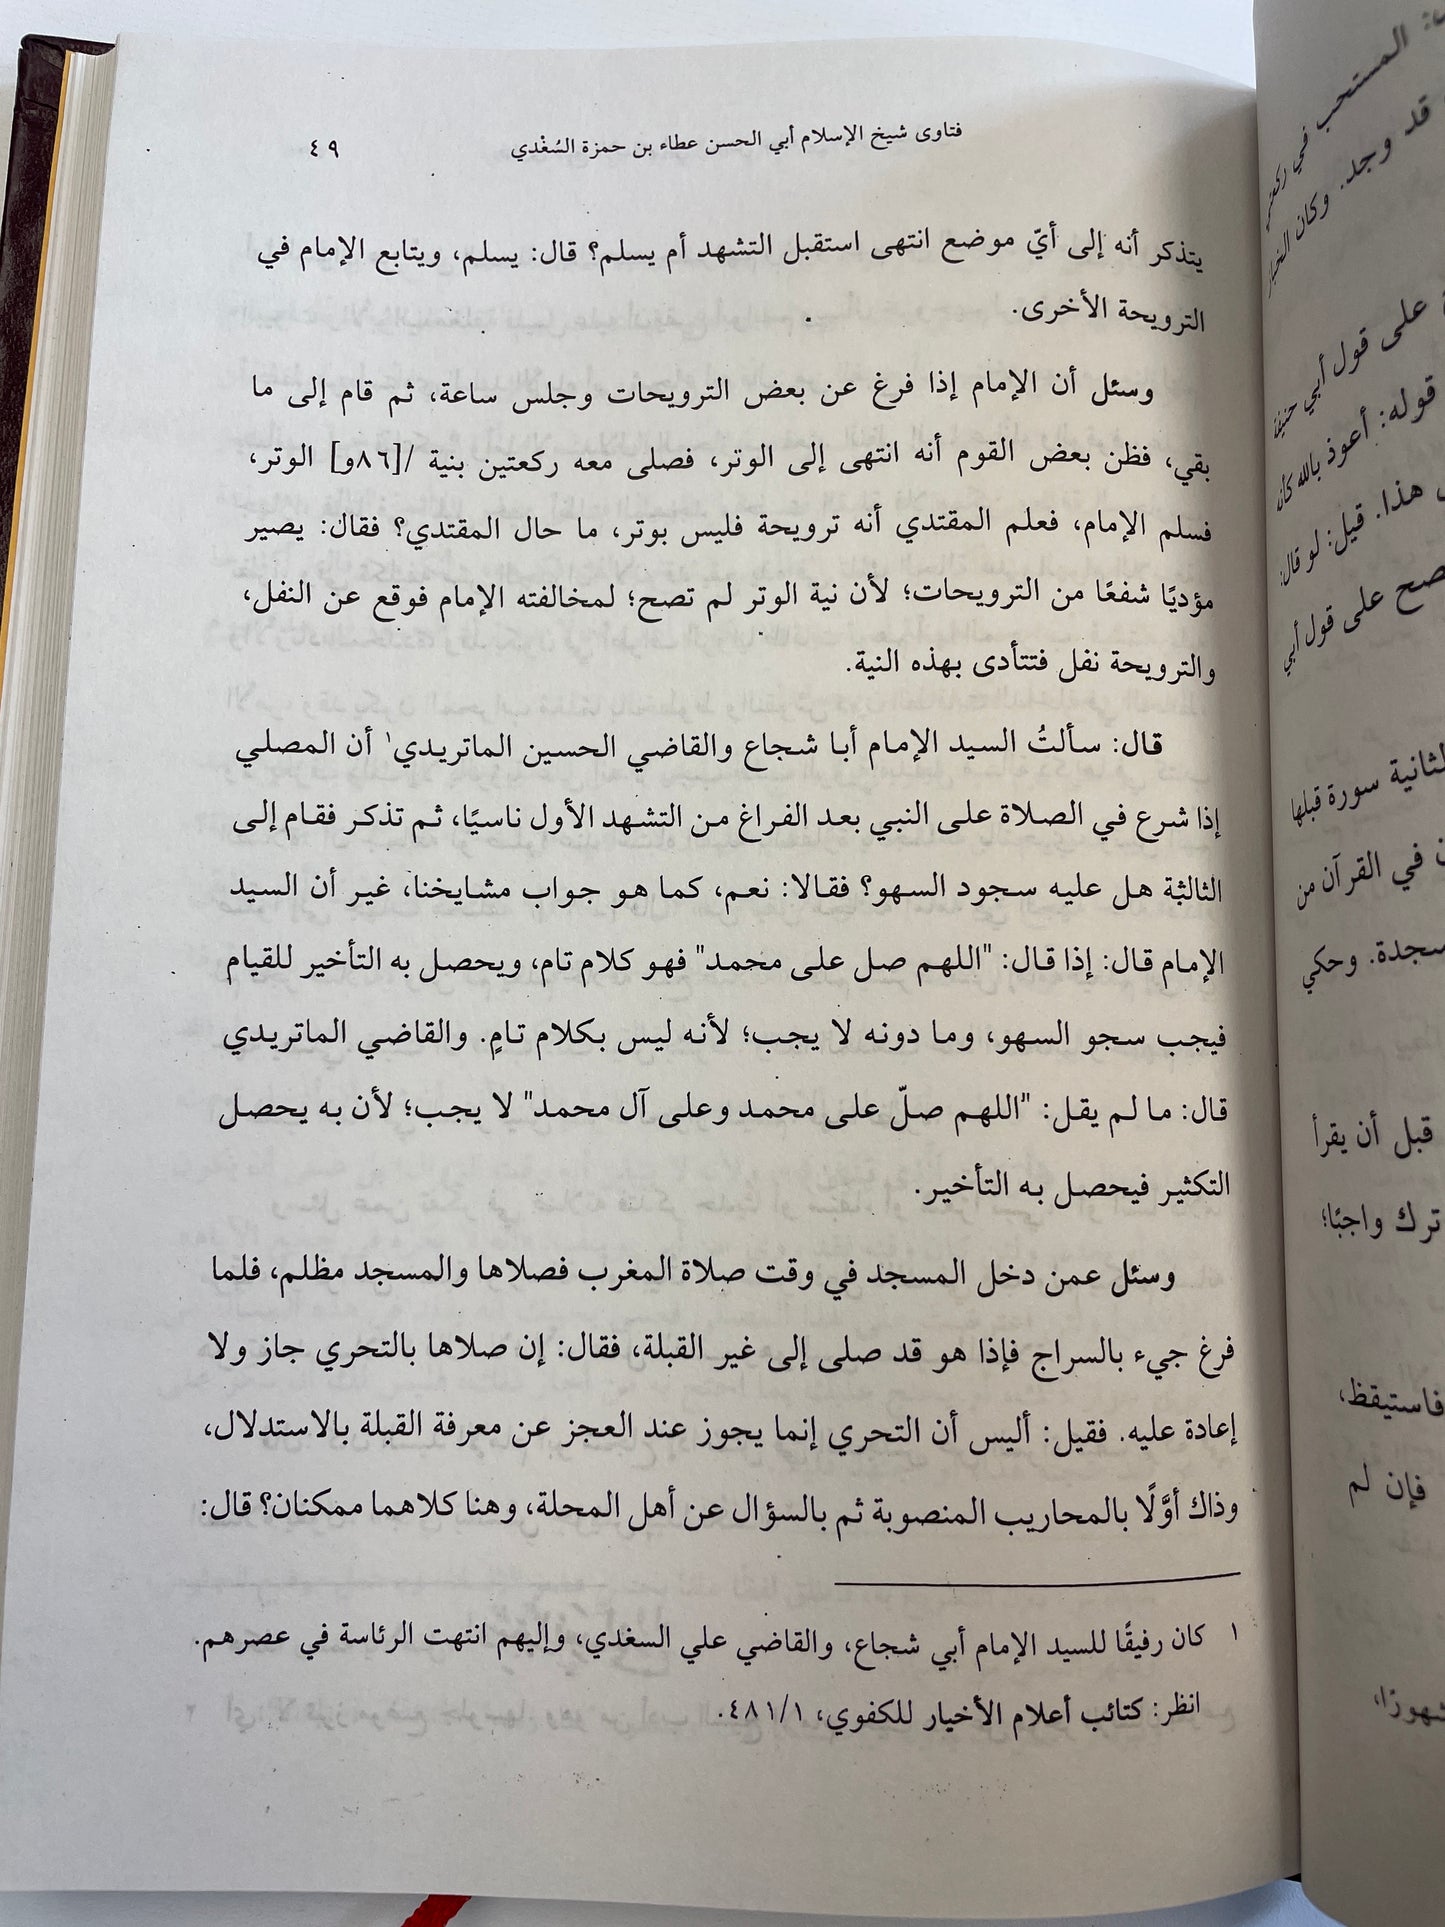 فتاوى شيخ الإسلام أبي الحسن عطاء بن حمزة السُغْدي ٤٩
يتذكر أنه إلى أيّ موضع انتهى استقبل التشهد أم يسلم؟ قال: يسلم، ويتابع الإمام في
الترويحة الأخرى.
وسئل أن الإمام إذا فرغ عن بعض الترويحات وجلس ساعة، ثم قام إلى ما
بقي، فظن بعض القوم أنه انتهى إلى الوتر، فصلى معه ركعتين بنية /[٨٦و] الوتر،
فسلم الإمام، فعلم المقتدي أنه ترويحة فليس بوتر، ما حال المقتدي؟ فقال: يصير
مؤديًا شفعًا من الترويحات؛ لأن نية الوتر لم تصح؛ لمخالفته الإمام فوقع عن النفل،
والترويحة نفل فتتأدى بهذه النية.
قال: سألتُ السيد الإمام أبا شجاع والقاضي الحسين الماتريدي١ أن المصلي
إذا شرع في الصلاة على النبي بعد الفراغ من التشهد الأول ناسيًا، ثم تذكر فقام إلى
الثالثة هل عليه سجود السهو؟ فقالا: نعم، كما هو جواب مشايخنا، غير أن السيد
الإمام قال: إذا قال: "اللهم صل على محمد" فهو كلام تام، ويحصل به التأخير للقيام
فيجب سجو السهو، وما دونه لا يجب؛ لأنه ليس بكلام تامٍ. والقاضي الماتريدي
قال: ما لم يقل: "اللهم صلّ على محمد وعلى آل محمد" لا يجب؛ لأن به يحصل
التكثير فيحصل به التأخير.
وسئل عمن دخل المسجد في وقت صلاة المغرب فصلاها والمسجد مظلم، فلما
فرغ جيء بالسراج فإذا هو قد صلى إلى غير القبلة، فقال: إن صلاها بالتحري جاز ولا
إعادة عليه. فقيل: أليس أن التحري إنما يجوز عند العجز عن معرفة القبلة بالاستدلال،
وذاك أوَّلًا بالمحاريب المنصوبة ثم بالسؤال عن أهل المحلة، وهنا كلاهما ممكنان؟ قال:
١ كان رفيقًا للسيد الإمام أبي شجاع، والقاضي علي السغدي، وإليهم انتهت الرئاسة في عصرهم.
انظر: كتائب أعلام الأخيار للكفوي، ٤٨١/١.
المستحب في
قد وجد. وكان
على قول أبي حنيفة
قوله: أعوذ بالله كان
هذا. قيل: لو قال:
على قول أبي
سورة قبلها
في القرآن من
وحكي
قبل أن يقرأ
ترك واجبًا؛
فاستيقظ،
فإن لم